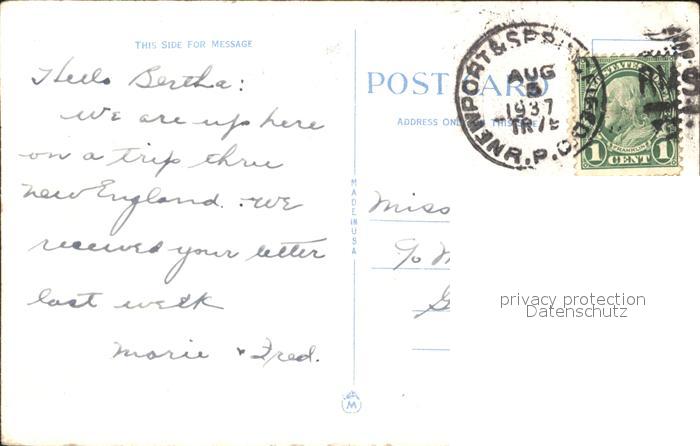 THIS SIDE FOR MESSAGE
Hello Bertha:
We are up here
on a trip thru
New England. We
received your letter
last week
Marie & Fred.
MADE IN USA
M
POST CARD
ADDRESS ONLY ON THIS SIDE
NEWPORT & SPRINGFIELD
AUG
5
1937
R.P.O.
U.STATES
FRANKLIN
1 CENT 1
Miss
c/o M
G
privacy protection
Datenschutz